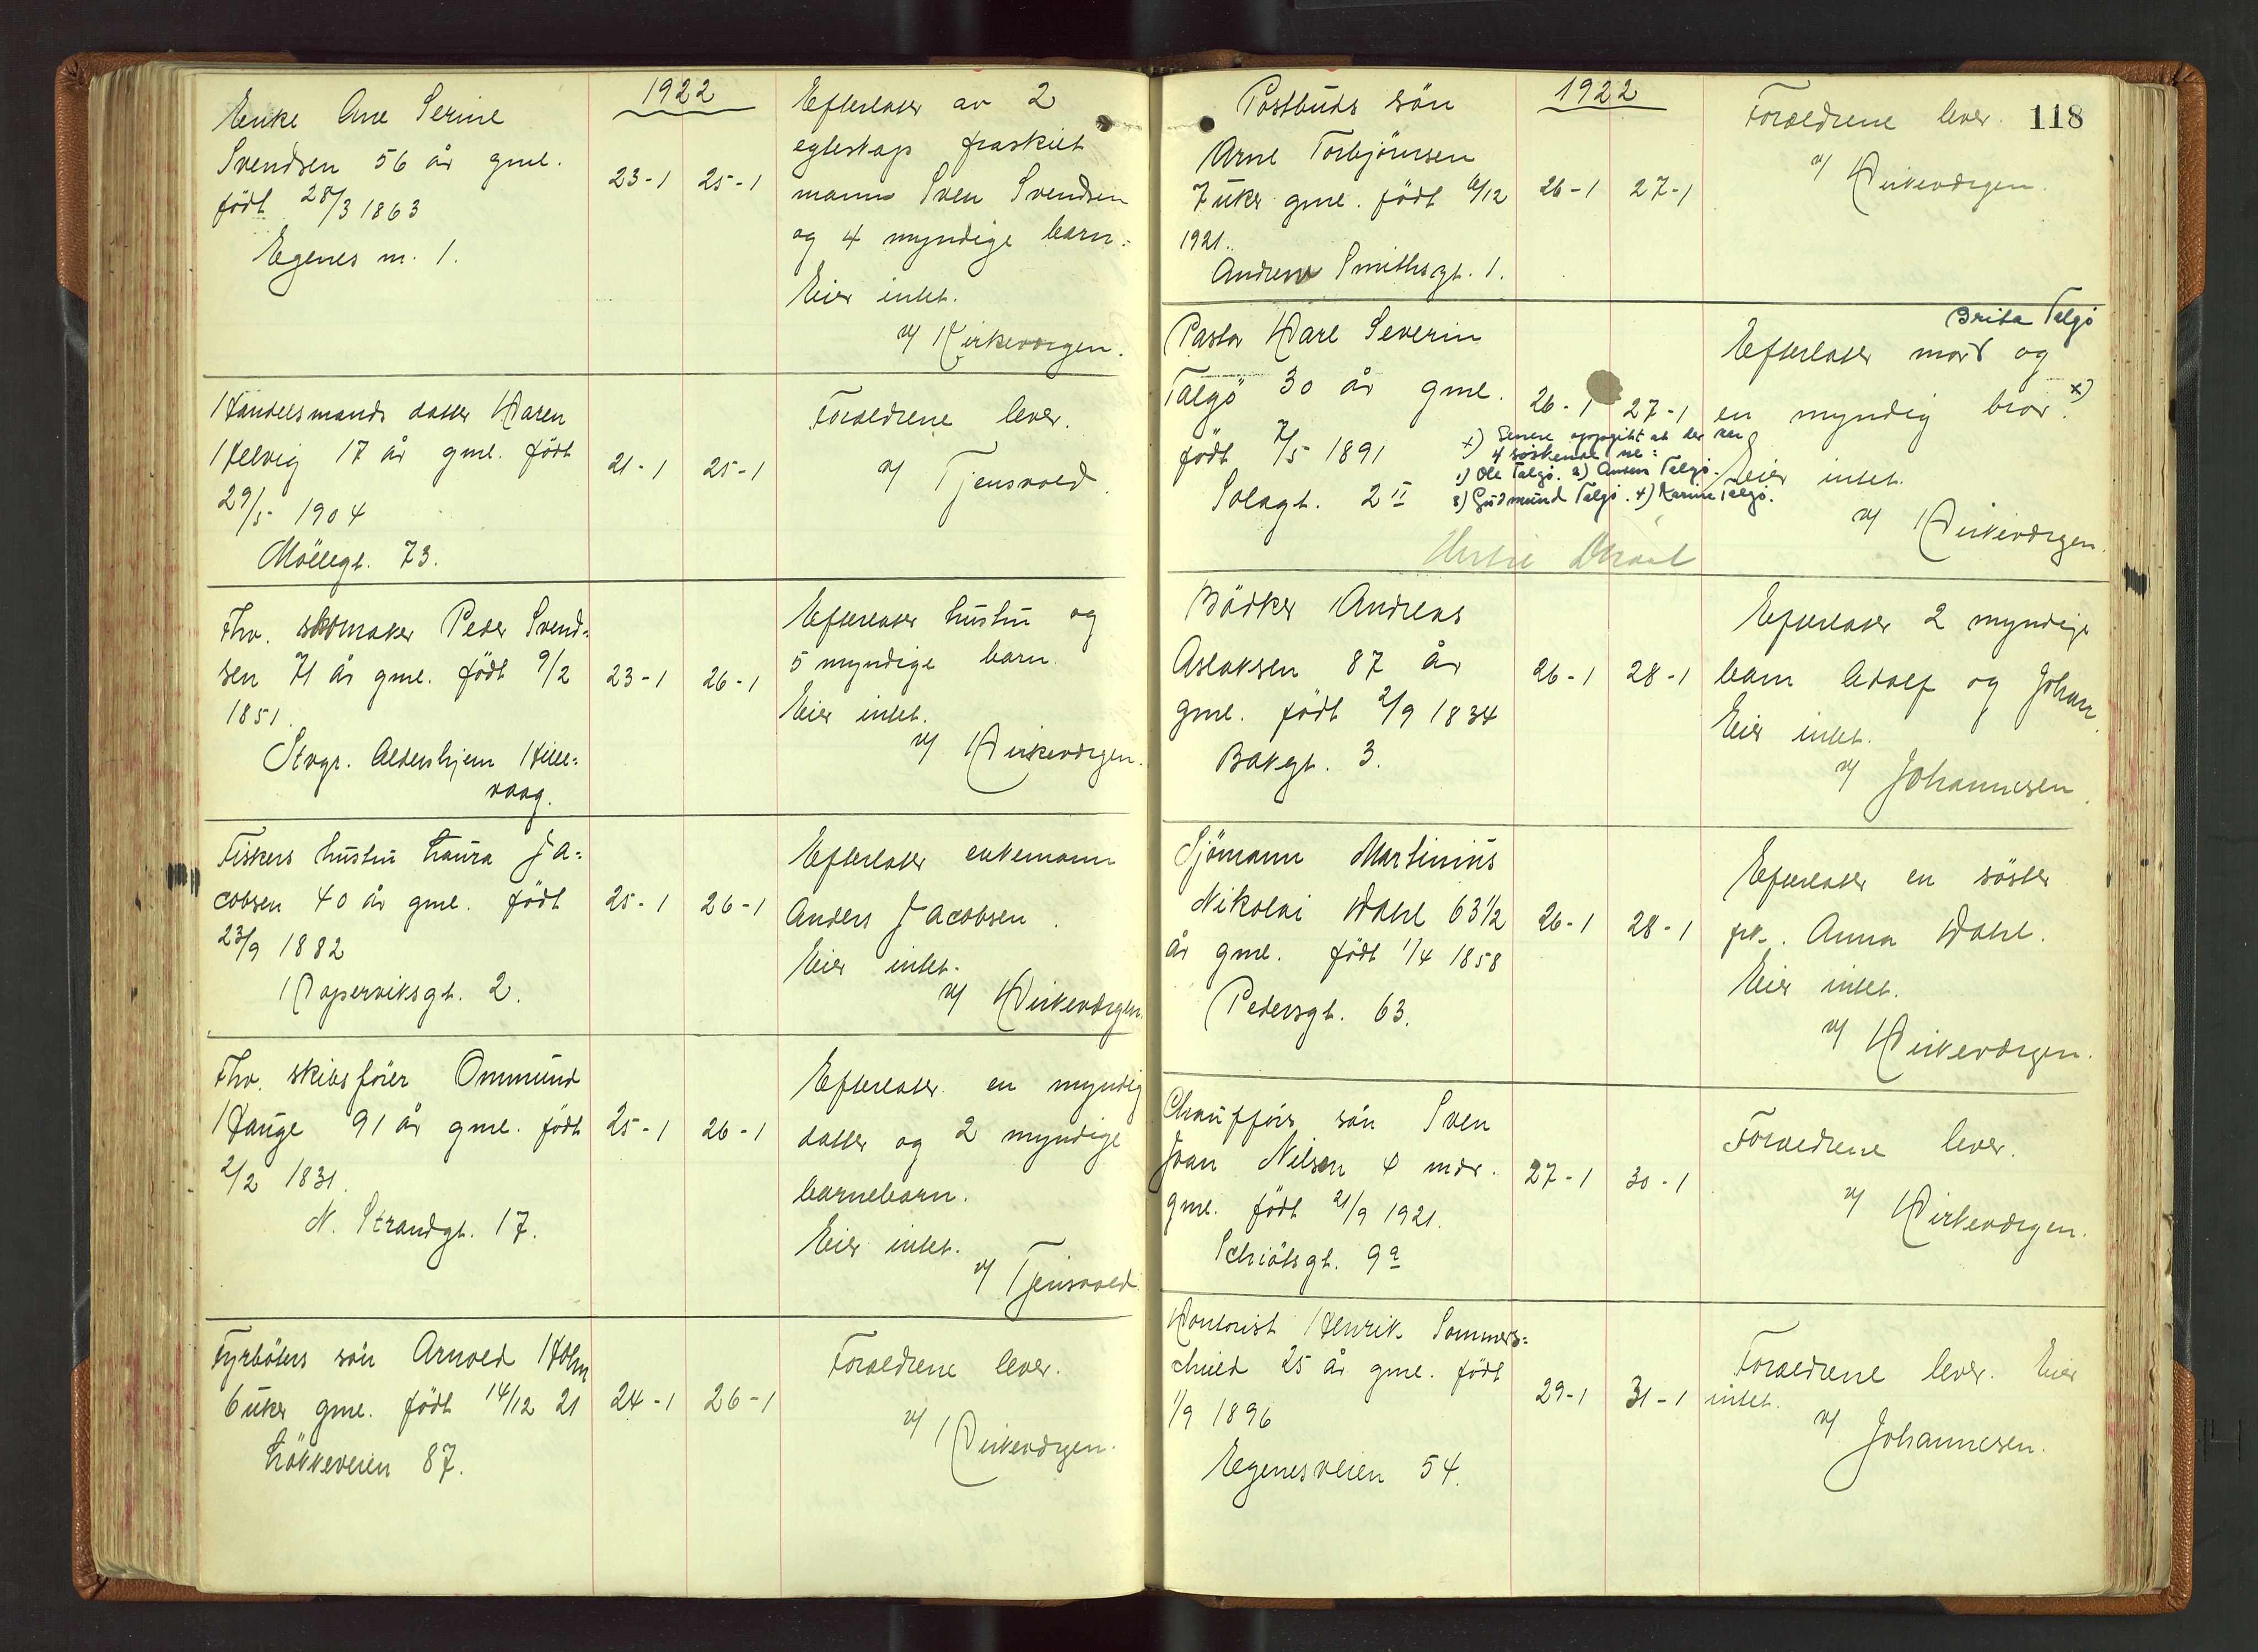 1922
Enke Ane Serine
Svendsen 56 år gml.
født 28/3 1863
Egenes m. 1.
23-1 25-1
Efterlater av 2
egteskap fraskilt
mann Sven Svendsen
og 4 myndige barn.
Eier intet.
v/ Kirkevergen.
Handelsmands datter Karen
Helvig 17 år gml. født
29/5 1904
Möllegt. 73.
21-1 25-1
Foraeldrene lever.
v/ Tjensvold.
Fhv. skomaker Peder Svend=
sen 71 år gml. født 9/2
1851.
Stvgr. Aldershjem Hille=
vaag.
23-1 26-1
Efterlater hustru og
5 myndige barn.
Eier intet.
v/ Kirkevergen.
Fiskers hustru Laura Ja=
cobsen 40 år gml. født
23/9 1882
Koperviksgt. 2.
25-1 26-1
Efterlater enkemann
Anders Jacobsen.
Eier intet.
v/ Kirkevergen.
Fhv. skibsförer Ommund
Hauge 91 år gml. født
2/2 1831.
N. Strandgt. 17.
25-1 26-1
Efterlater en myndig
datter og 2 myndige
barnebarn.
Eier intet.
v/ Tjensvold.
Fyrböters sön Arnold Holm
6 uker gml. født 14/12 21
Lökkeveien 87.
24-1 26-1
Foraeldrene lever.
v/ Kirkevergen.
1922
118
Postbuds sön
Arne Torbjörnsen
7 uker gml. født 6/12
1921.
Andreas Smithsgt. 1.
26-1 27-1
Foraeldrene lever.
v/ Kirkevergen.
Pastor Karl Severin
Talgö 30 år gml.
født 7/5 1891
Solagt. 2 II
26-1 27-1
Brita Talgö
Efterlater mor og
en myndig bror. x)
Eier intet.
v/ Kirkevergen.
x) Senere oppgitt at der var
4 söskende nl:
1) Ole Talgö. 2) Anders Talgö.
3) Gudmund Talgö. 4) Karine Talgö.
Bödker Andreas
Aslaksen 87 år
gml. født 2/9 1834
Bakgt. 3.
26-1 28-1
Efterlater 2 myndige
barn Adolf og Johan.
Eier intet.
v/ Johannesen.
Sjömann Martinius
Nikolai Dahl 63 1/2
år gml. født 1/4 1858
Pedersgt. 63.
26-1 28-1
Efterlater en söster
frk. Anna Dahl.
Eier intet.
v/ Kirkevergen.
Chaufförs sön Sven
Ivan Nilsen 4 mdr.
gml. født 21/9 1921.
Schiötsgt. 9a
27-1 30-1
Foraeldrene lever.
v/ Kirkevergen.
Kontorist Henrik Sommers=
child 25 år gml. født
1/9 1896
Egenesveien 54.
29-1 31-1
Foraeldrene lever. Eier
intet.
v/ Johannesen.